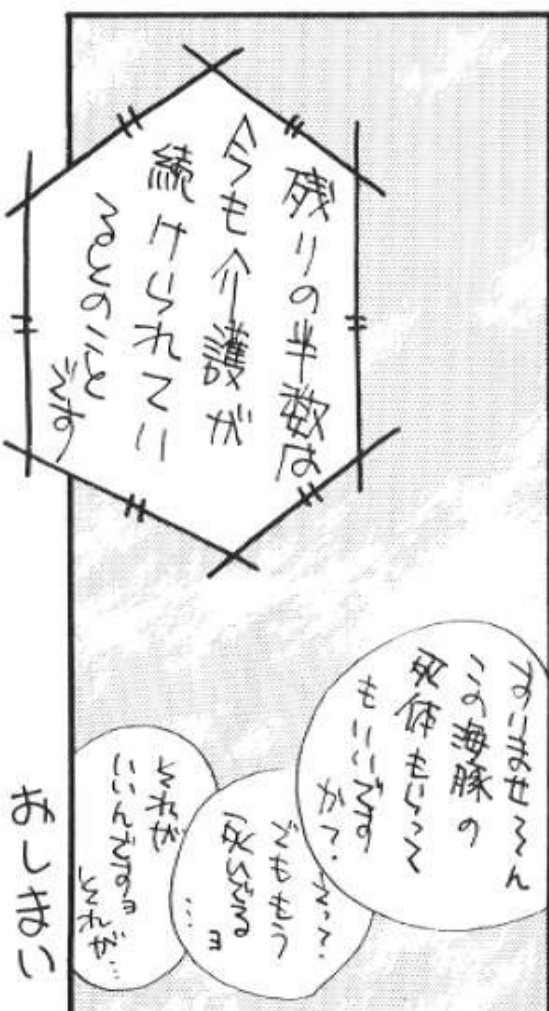 残りの半数は
今も介護が
続けられてい
るとのこと
です
すいませェん
この海豚の
死体もらって
もいいです
かて.
えって.
でももう
死んでるョ
…
それが
いいんですョ
それが…
おしまい